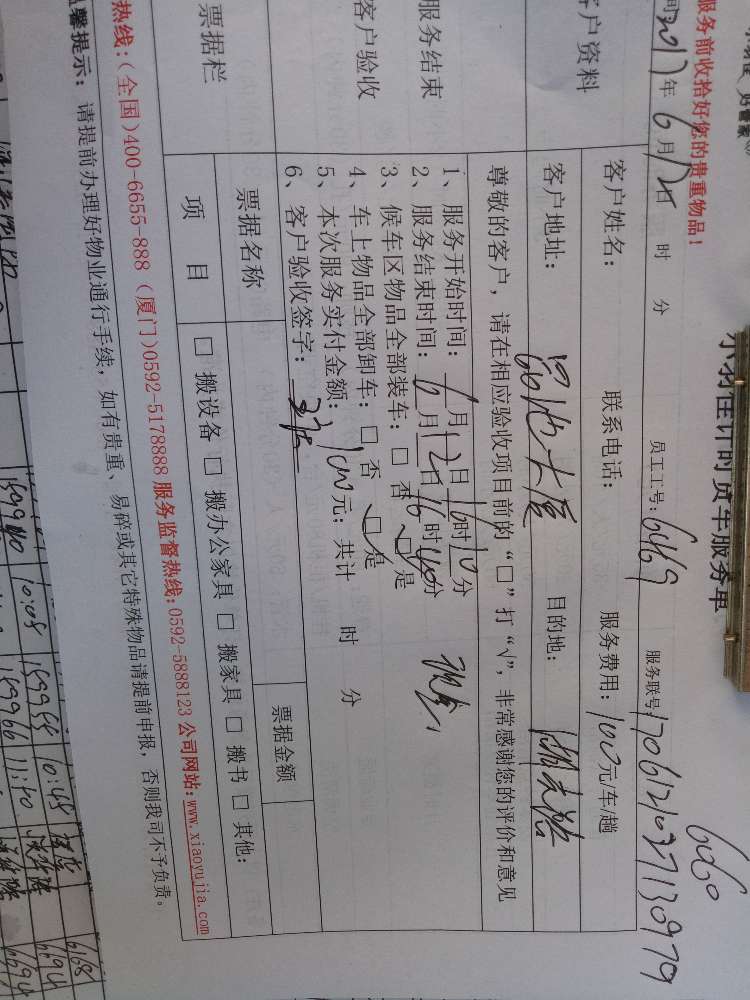 小羽佳计时货车服务单
6060
服务前收拾好您的贵重物品!
2017年6月12日 时 分
员工工号: 6469
服务联号 1706121027130979
客户资料
客户姓名:
联系电话:
服务费用: 100元/车/趟
客户地址:
目的地:
尊敬的客户, 请在相应验收项目前的“□”打“√”, 非常感谢您的评价和意见
服务结束
客户验收
1、服务开始时间: 6月12日16时10分
2、服务结束时间: 6月12日16时40分
3、候车区物品全部装车: □ 否 □ 是
4、车上物品全部卸车: □ 否 □ 是
5、本次服务实付金额: 100元; 共计 时 分
6、客户验收签字:
票据栏
票据名称
票据金额
项 目
□ 搬设备 □ 搬办公家具 □ 搬家具 □ 搬书 □ 其他:
热线: (全国)400-6655-888 (厦门)0592-5178888 服务监督热线:0592-5888123 公司网站: www.xiaoyujia.com
温馨提示: 请提前办理好物业通行手续, 如有贵重、易碎或其它特殊物品请提前申报, 否则我司不予负责。
10:08
10:48
6168
11:10
6694
6694